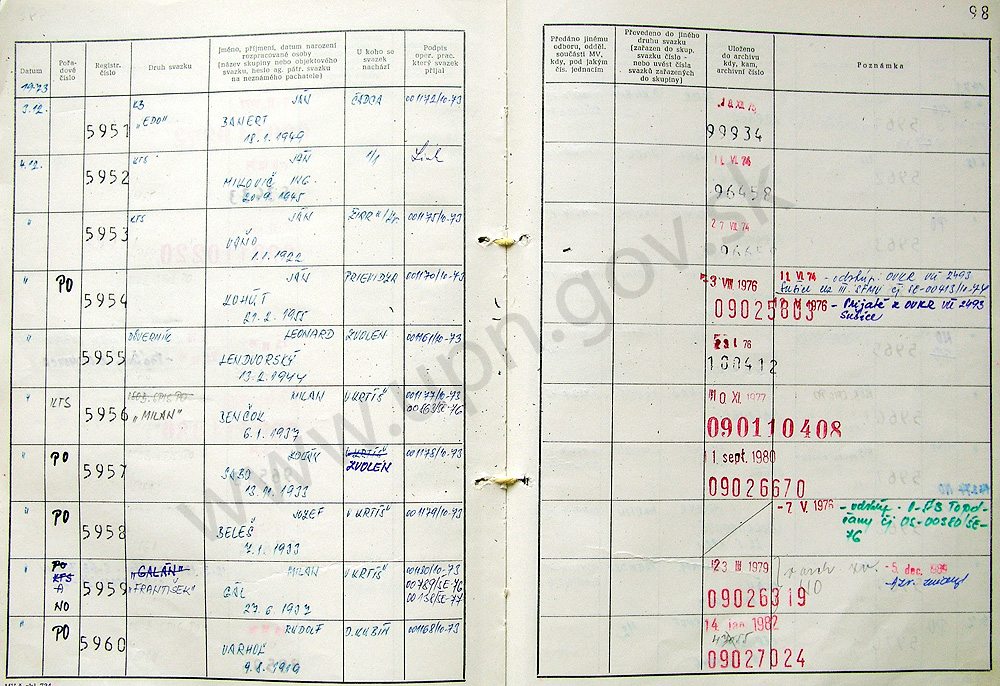 98
Datum
Pořa-
dové
číslo
Registr.
číslo
Druh svazku
Jméno, příjmení, datum narození
rozpracované osoby
(název skupiny nebo objektového
svazku, heslo ag. pátr. svazku
na neznámého pachatele)
U koho se
svazek
nachází
Podpis
oper. prac.
který svazek
přijal
Předáno jinému
odboru, odděl.
součásti MV,
kdy, pod jakým
čís. jednacím
Převedeno do jiného
druhu svazku
(zařazen do skup.
svazku číslo -
nebo uvést čísla
svazků zařazených
do skupiny)
Uloženo
do archivu
kdy, kam,
archivní číslo
Poznámka
1973
3.12.
5951
KS
"EDO"
JÁN
BANERT
18.1.1949
ČADCA
001172/10-73
99934
4.12.
5952
KTS
JÁN
MILOVIČ ING.
20.9.1945
VI. 74
96458
"
5953
KTS
JÁN
VAŇO
1.1.1922
001175/10-73
27 VI. 74
"
PO
5954
JÁN
KOHÚT
21.2.1955
PRIEVIDZA
001170/10-73
23 VIII 1976
09025803
11. VI. 74 - odstúp. OVKR VÚ 2493
Sušice
1976 - Prijaté z OVKR VÚ 2493
Sušice
"
5955
DÔVERNÍK
LEONARD
LENDVORSKÝ
13.2.1944
ZVOLEN
001161/10-73
76
100412
"
KTS
5956
"MILAN"
MILAN
BENČOK
6.1.1937
V KRTÍŠ
001177/10-73
00163/SE-76
10. XI. 1977
090110408
"
PO
5957
SABO
13.11.1933
V KRTÍŠ
ZVOLEN
001178/10-73
11. sept. 1980
09026670
"
PO
5958
JOZEF
BELEŠ
7.1.1933
V KRTÍŠ
001179/10-73
-7. V. 1976 - odstúp.
76
"
PO
KTS
A
NO
5959
"GALÁN"
"FRANTIŠEK"
MILAN
GÁL
27.6.1937
V KRTÍŠ
001180/10-73
00789/SE-76
00138/SE-77
23 III 1979
09026319
NO
-5. dec. 1984
"
PO
5960
RUDOLF
VARHOL
9.8.1919
D. KUBÍN
001168/10-73
14 jan. 1982
09027024
www.upn.gov.sk